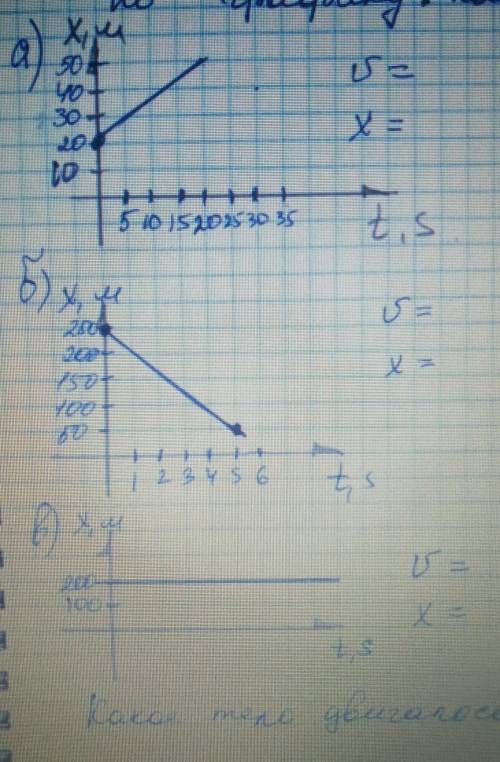 по
а)
х, м
50
40
30
20
10
5 10 15 20 25 30 35
t, s
υ =
х =
б)
х, м
250
200
150
100
50
1 2 3 4 5 6
t, s
υ =
х =
в)
х, м
200
100
t, s
υ =
х =
тело двигалось